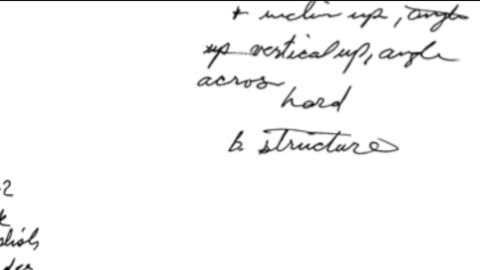 + inclin up, angle
up vertical up, angle
across
hard
b. structure
-2